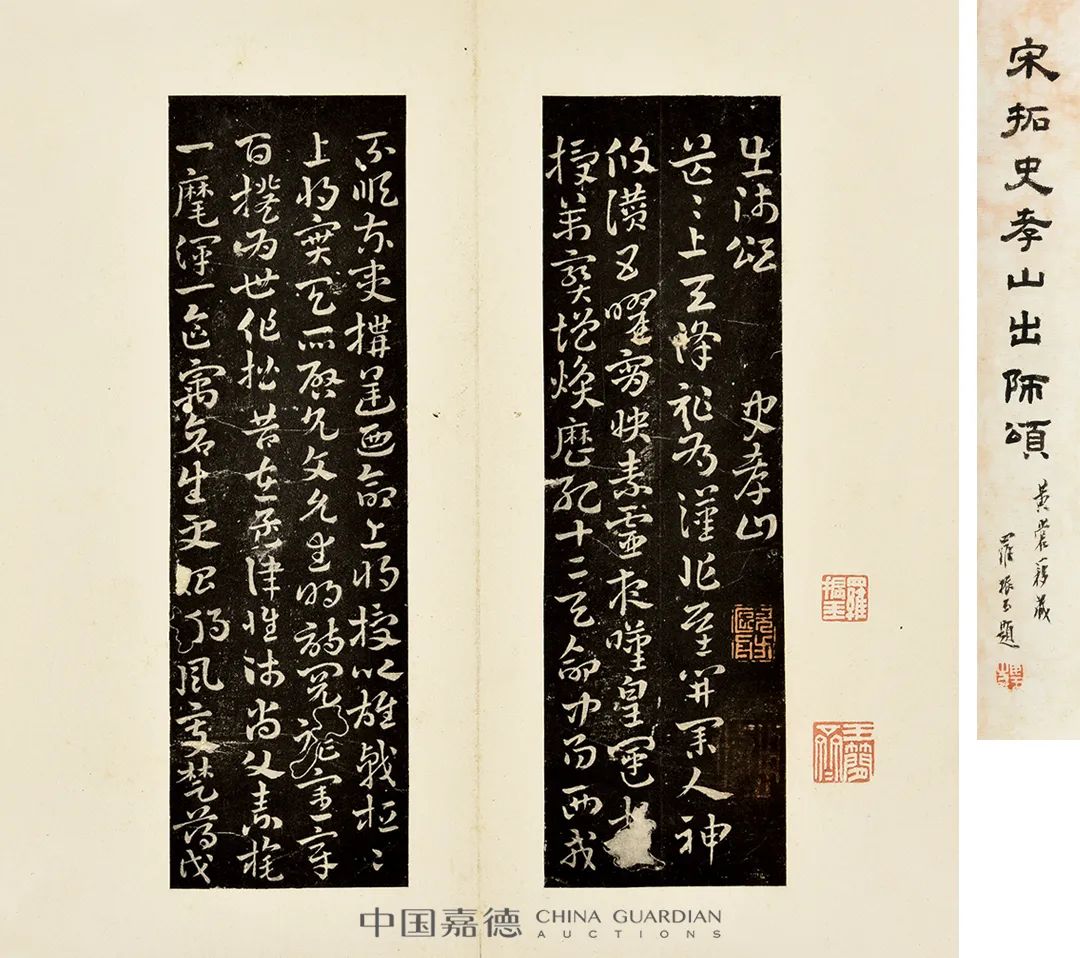 宋拓史孝山出師頌
羅振玉題
出師頌 史孝山
茫〻上天降祚為漢作基開業人神
攸讚五曜霄映素靈夜嘆皇運
授萬寶增煥歷紀十二天命中易西戎
不順東夷構逆迺命上將授以雄戟桓〻
上將實天所啟允文允武明詩閱禮憲章
百揆為世作楷昔在孟津惟師尚父素旄
一麾渾一區宇蒼生更始朔風變楚薄伐
羅振玉
中国嘉德 CHINA GUARDIAN
AUCTIONS